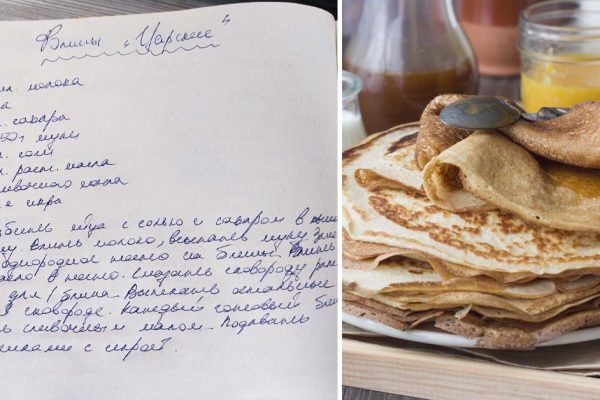 Блины "Царские"
мл. молока
ца
л. сахара
50 г муки
л. соли
л. раст. масла
сливочного масла
е икра
бить яйца с солью и сахаром в
му. Влить молоко, всыпать муку. Заме
однородное тесто на блины. Влить
асло в тесто. Смазать сковороду раст
для 1 блина. Выпекать остальные
сковороде. Каждый готовый блин
ь сливочным маслом. Подавать
с икрой.